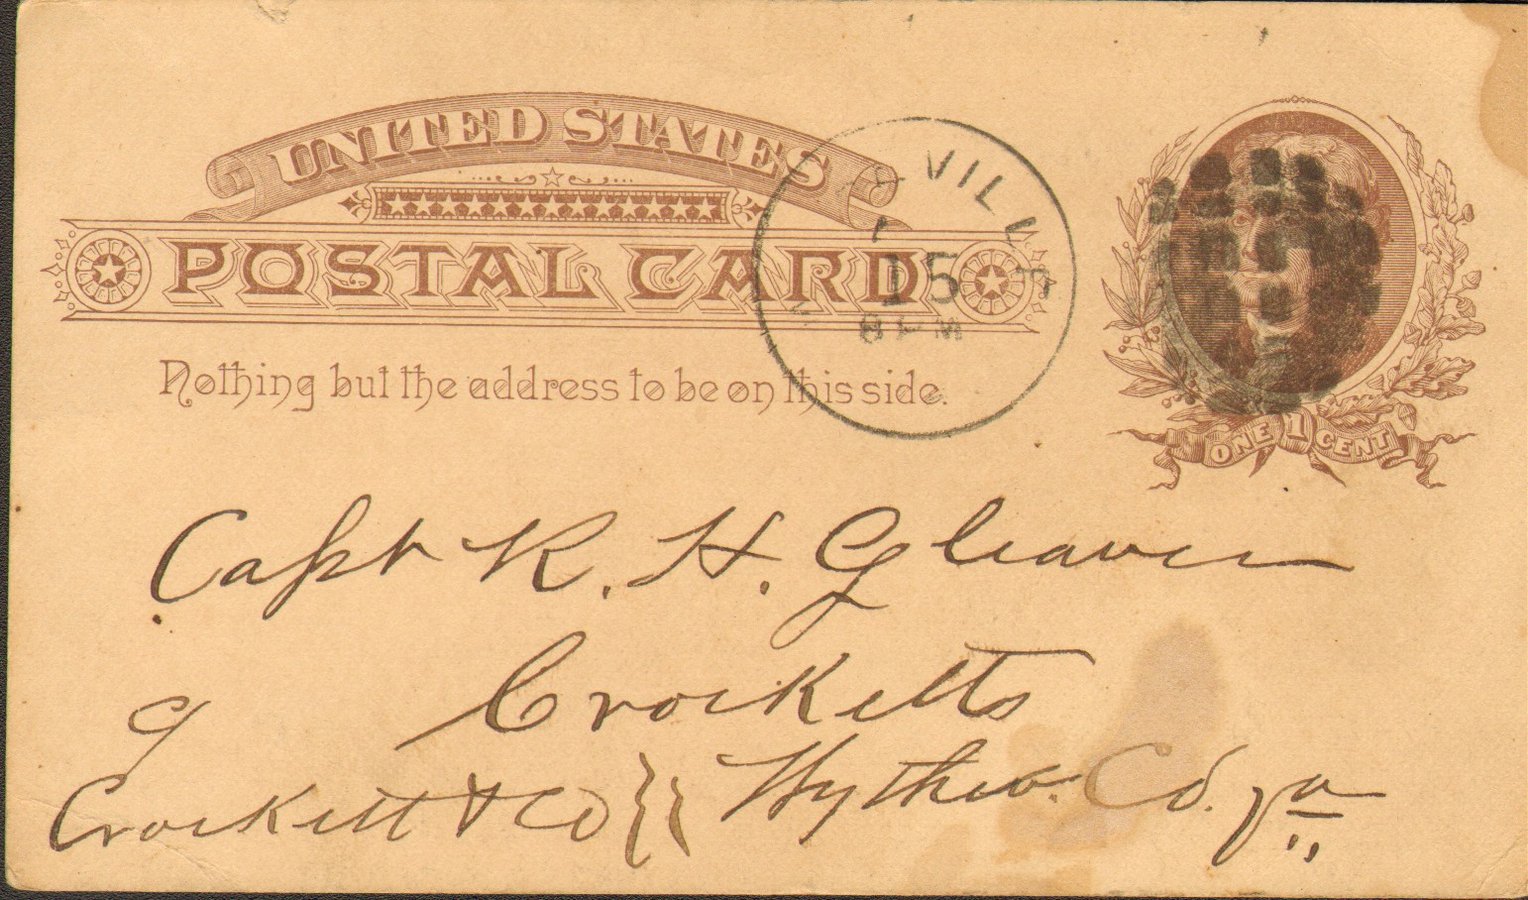 UNITED STATES
POSTAL CARD
Nothing but the address to be on this side.
VILLE
15
8 PM
ONE 1 CENT
Capt R. H. Gleaver
Crocketts
Crockett & Co
Wythe Co. Va